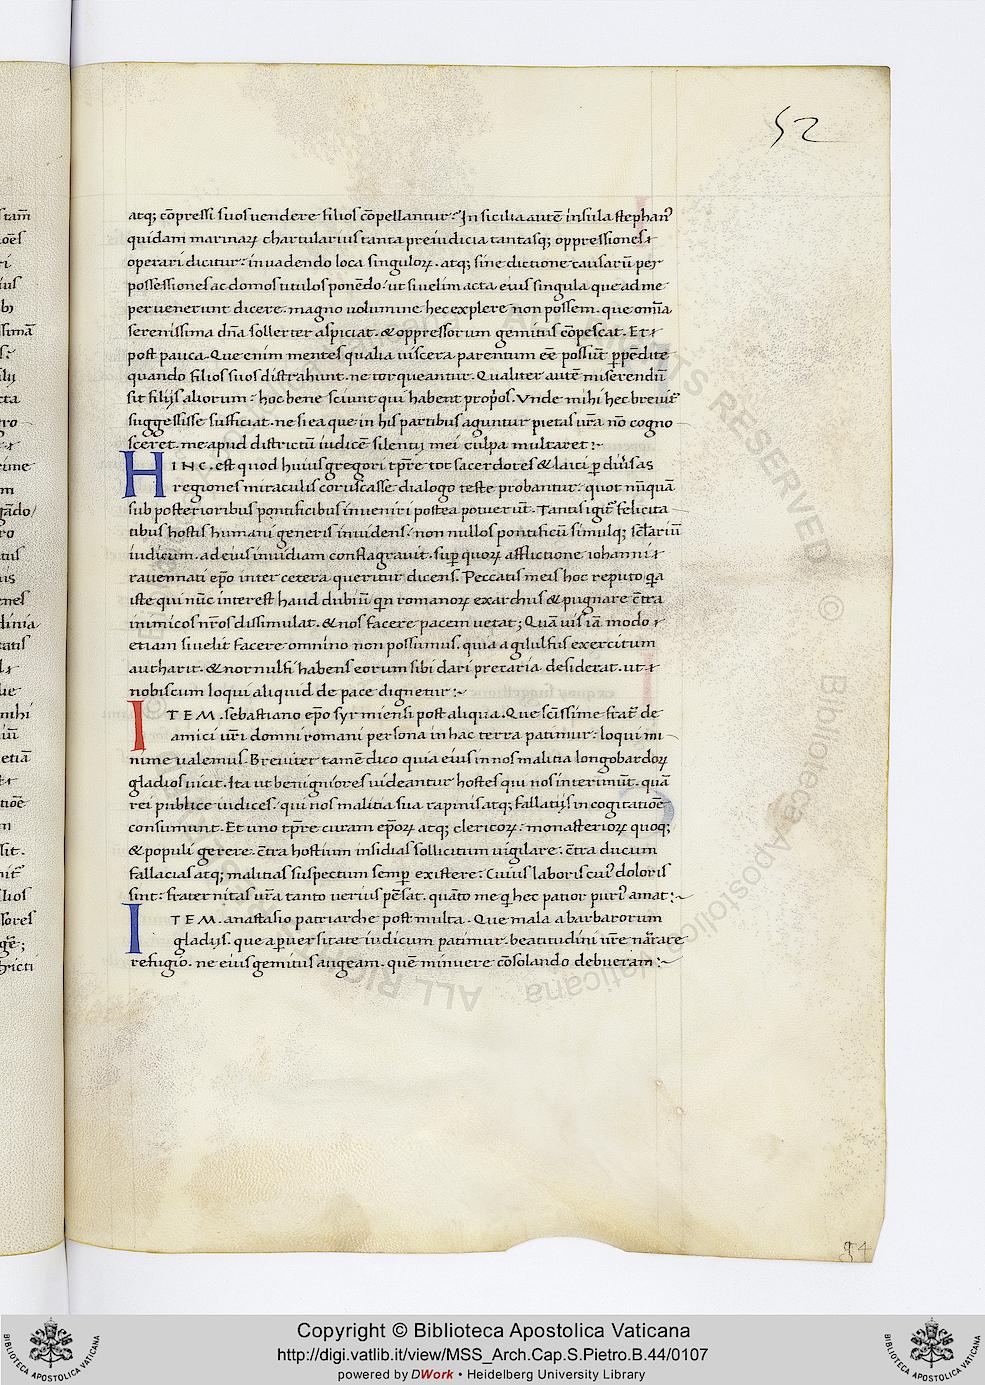 52
atq; cōpressi suos uendere filios cōpellantur: In sicilia autē insula stephan᾽
quidam marinaꝝ chartularius tanta preiudicia tantasq; oppressiones
operari dicitur: inuadendo loca singuloꝝ. atq; sine dictione causarū per
possessiones ac domos titulos ponēdo: ut si uelim acta eius singula que ad me
peruenerunt dicere. magno uolumine hec explere non possem. que om̄ia
serenissima dn̄a sollerter aspiciat. & oppressorum gemitus cōpescat. Et
post pauca. Que enim mentes qualia uiscera parentum eē possūt ꝑpēdite
quando filios suos distrahunt. ne torqueantur. Qualiter autē miserendū
sit filijs aliorum: hoc bene sciunt qui habent prop̄os. Vnde mihi hec breuit̄
suggessisse sufficiat. ne si ea que in his partibus aguntur pietas ur̄a nō cogno
sceret. me apud districtū iudicē silentij mei culpa multaret:~
HINC. est quod huius gregori tp̄re tot sacerdotes & laici ꝑ diuersas
regiones miraculis coruscasse dialogo teste probantur: quot nūquā
sub posterioribus pontificibus inueniri postea potuerūt. Tantis igit᷑ felicita
tibus hostis humani generis inuidens: non nullos pontificū simulq; scl̄ariū
iudicum. ad eius inuidiam conflagrauit. suꝑ quoꝝ afflictione iohanni
rauennati ep̄o inter cetera queritur dicens. Peccatis meis hoc reputo q̄a
iste qui nūc interest haud dubiū q̄n romanoꝝ exarchus & pugnare c̄tra
inimicos nr̄os dissimulat. & nos facere pacem uetat; Quā uis iā modo
etiam si uelit facere omnino non possumus. quia agilulfus exercitum
autharit. & nornulfi habens eorum sibi dari precaria desiderat. ut
nobiscum loqui aliquid de pace dignetur:~
ITEM. sebastiano ep̄o syrmiensi post aliqua. Que sc̄issime frat᷑ de
amici ur̄i domni romani persona in hac terra patimur: loqui mi
nime ualemus. Breuiter tamē dico quia eius in nos malitia longobardoꝝ
gladios uicit. Ita ut benigniores uideantur hostes qui nos interimūt. quā
rei publice iudices: qui nos malitia sua rapinis atq; fallatijs in cogitatiōe
consumunt. Et uno tp̄re curam ep̄oꝝ atq; clericoꝝ: monasterioꝝ quoq;
& populi gerere. c̄tra hostium insidias sollicitum uigilare. c̄tra ducum
fallacias atq; malitias suspectum semꝑ existere: Cuius laboris cui᾽ doloris
sint: fraternitas ur̄a tanto uerius pēsat. quāto me q̄ hec patior puri᾽ amat:~
ITEM. anastasio patriarche post multa. Que mala a barbarorum
gladijs. que a ꝑuersitate iudicum patimur. beatitudini ur̄e narrare
refugio. ne eius gemitus augeam. quē minuere cōsolando debueram:~
94
Copyright © Biblioteca Apostolica Vaticana
http://digi.vatlib.it/view/MSS_Arch.Cap.S.Pietro.B.44/0107
powered by DWork • Heidelberg University Library